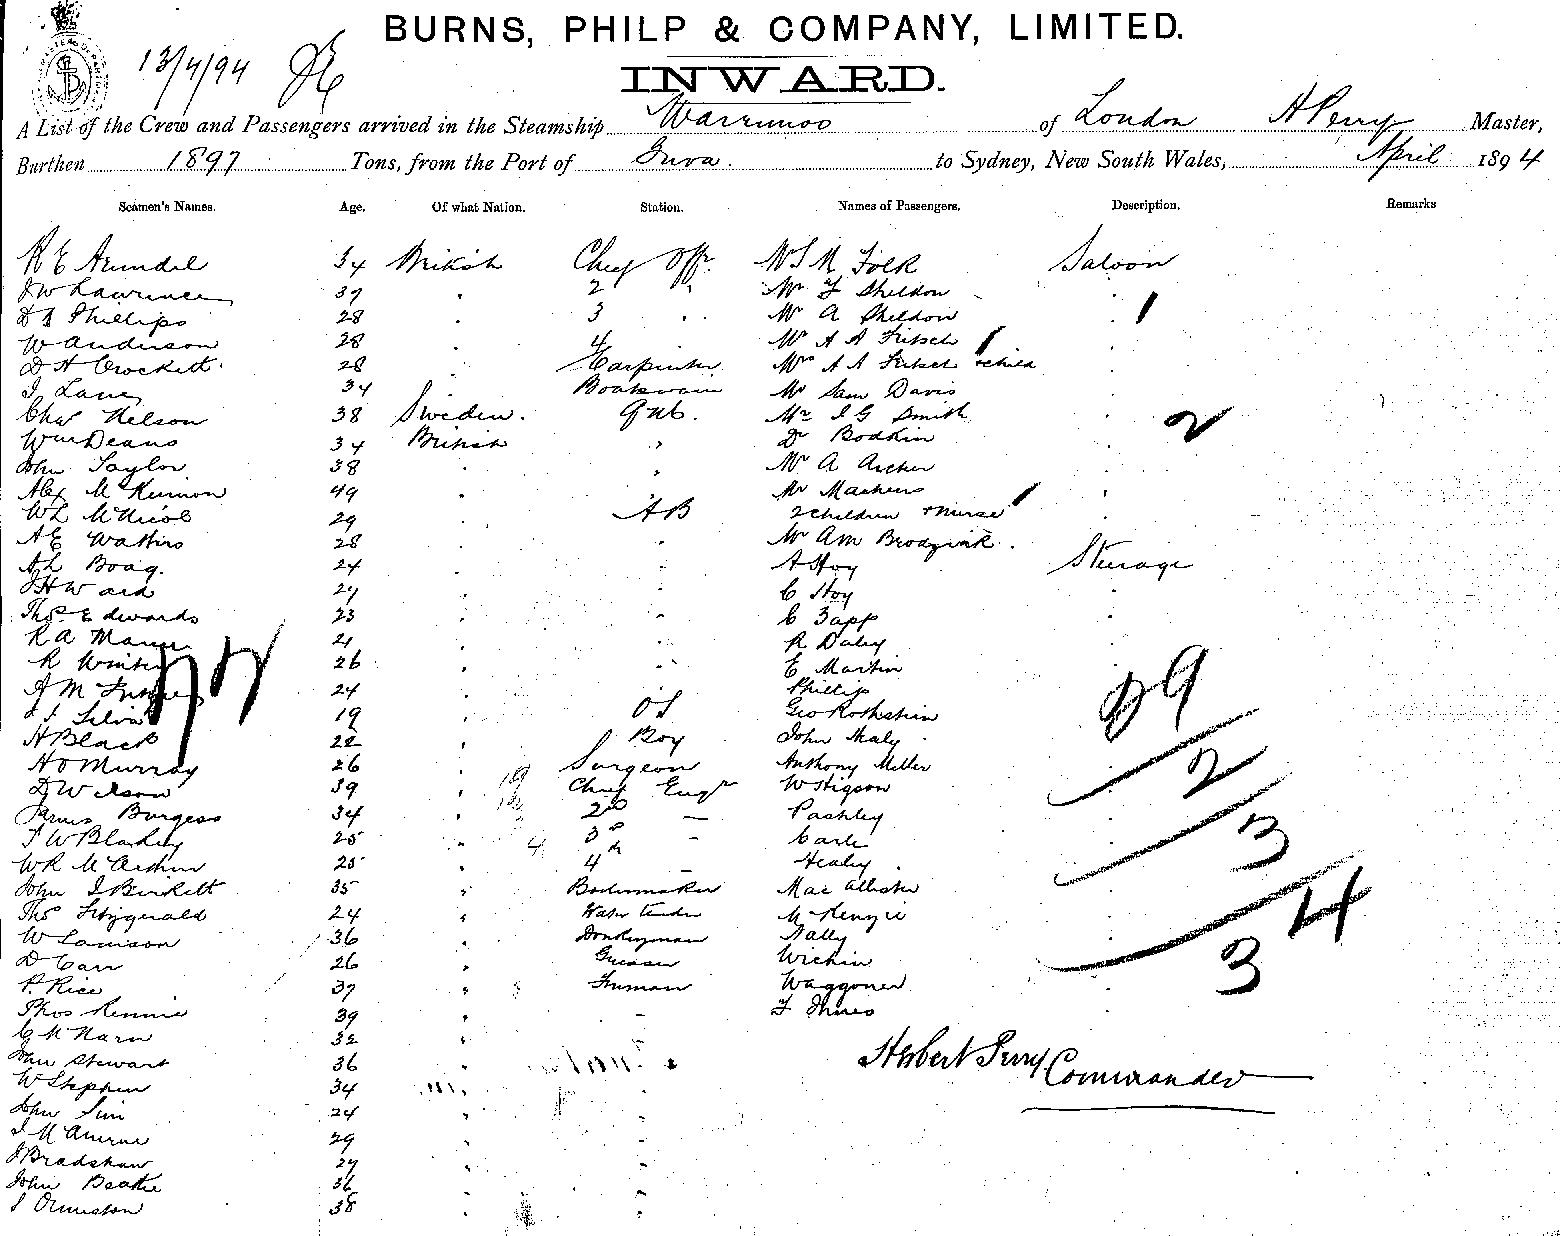 BURNS, PHILP & COMPANY, LIMITED.
13/4/94
INWARD.
A List of the Crew and Passengers arrived in the Steamship Warrimoo of London H Perry Master,
Burthen 1897 Tons, from the Port of Suva. to Sydney, New South Wales, April 1894
Seamen's Names. Age. Of what Nation. Station. Names of Passengers. Description. Remarks
R E Arundel 34 British Chief Offr. Saloon
J W Lawrence 37 2 Mr F Sheldon
D J Phillips 28 3 Mr A Sheldon
W Anderson 28 4 Mr A A Fritsch
D H Crockett 28 Carpenter Mrs A A Fritsch + child
34 Boatswain Mr Sam Davis
Chas Nelson 38 Sweden. QM. Mr J G Smith 2
Wm Deans 34 British Dr Bodkin
John Taylor 38 Mr A Archer
Alex McKinnon 49 Mr
W L McNicol 29 AB 2 children + nurse
A E Watkins 28 Mr A M
A L Boag. 24 A Hoy Steerage
J H Ward 27 C Hoy
Thos Edwards 23 C Zapp
R A Mann 21 R Daley
R Winter 26 E Martin
A M 24 Phillip
Silva 19 OS Geo Rothstein 29
H Black 22 Boy John Healy
H O Murray 26 Surgeon Anthony Miller 2
D Wilson 39 Chief Engr W Higson
James Burgess 34 2nd Pashley
J W Blakey 25 3rd Earle 3
W R McArthur 25 4th Healey
John J Birkett 35 Boilermaker MacAllister
Thos Fitzgerald 24 Water tender McKenzie 4
W Lamison 36 Donkeyman Nally
D Carr 26 Greaser Wichin 3
P. Rice 37 Fireman Waggoner
Thos Rennie 39 F Innes
32
John Stewart 36 Herbert Perry Commander
W Stephen 34
John Sim 24
29
J Bradshaw 27
John Beattie 36
J Ormiston 38